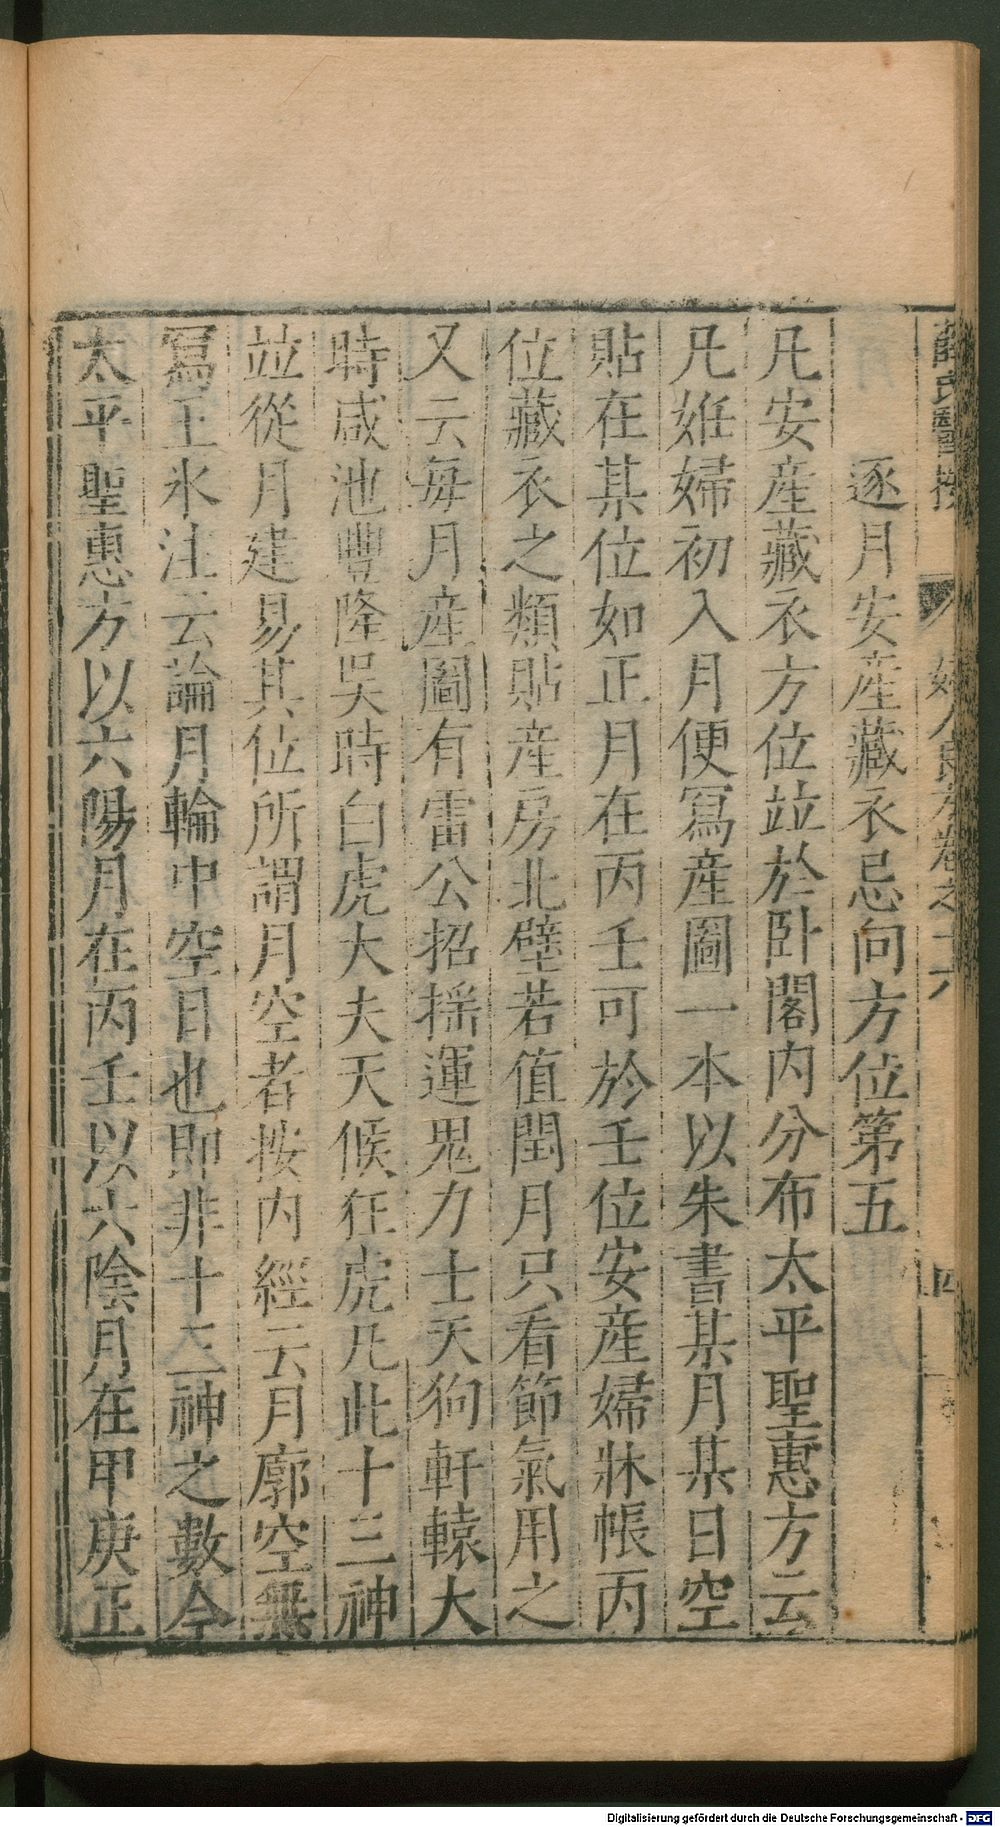 薛氏醫按
婦人良方卷之十六
四
逐月安産藏衣忌向方位第五
凡安産藏衣方位竝於卧閣内分布太平聖惠方云
凡姙婦初入月便寫産圖一本以朱書某月某日空
貼在某位如正月在丙壬可於壬位安産婦牀帳丙
位藏衣之類貼産房北壁若值閏月只看節氣用之
又云每月産圖有雷公招搖運鬼力士天狗軒轅大
時咸池豐隆吳時白虎大夫天候狂虎凡此十三神
竝從月建易其位所謂月空者按内經云月廓空無
寫王氷注云論月輪中空日也即非十三神之數今
太平聖惠方以六陽月在丙壬以六陰月在甲庚正
Digitalisierung gefördert durch die Deutsche Forschungsgemeinschaft - DFG